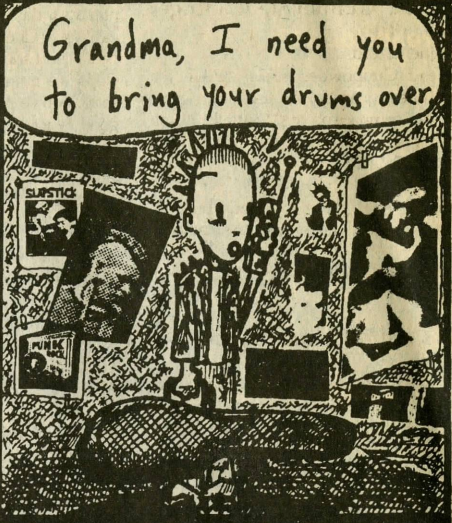 Grandma, I need you
to bring your drums over.
SLIPSTICK
PUNK